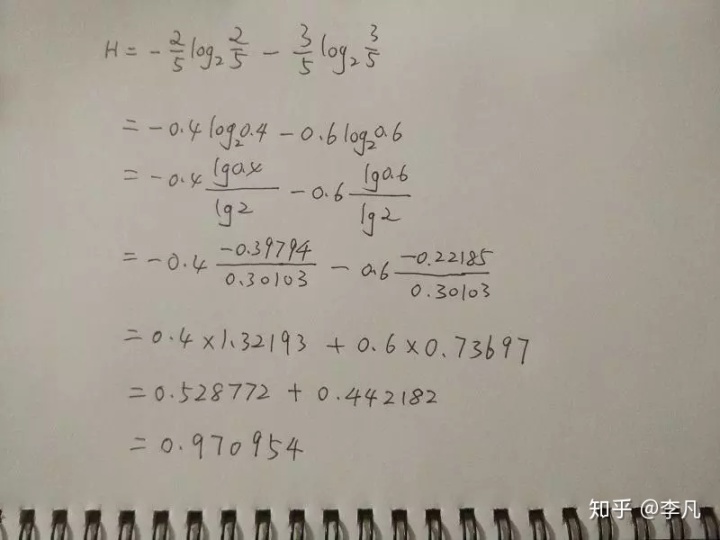 H = - 2/5 log₂ 2/5 - 3/5 log₂ 3/5
= -0.4 log₂0.4 - 0.6 log₂0.6
= -0.4 lg0.4/lg2 - 0.6 lg0.6/lg2
= -0.4 -0.39794/0.30103 - 0.6 -0.22185/0.30103
= 0.4 × 1.32193 + 0.6 × 0.73697
= 0.528772 + 0.442182
= 0.970954
知乎 @李凡